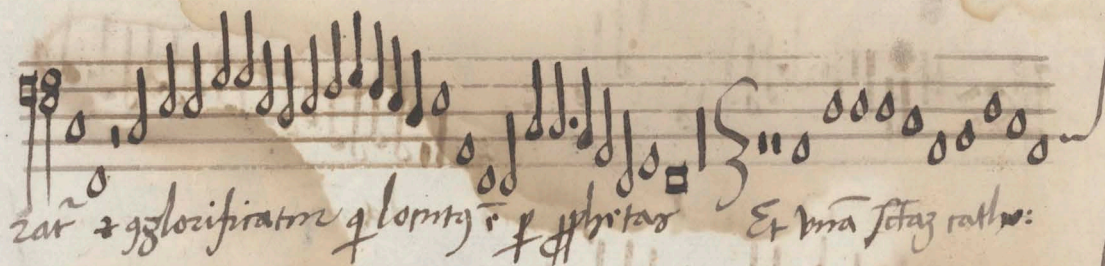 rat᷑ ⁊ ꝯglorificatur q̇ locutꝰ ē ꝑ ꝓphetas Et vnā sctaꝫ catho: